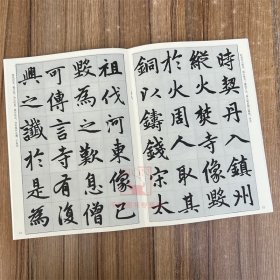 時契丹入鎮州
縱火焚寺像毀
於火周人取其
銅以鑄錢宋太
祖伐河東像已
毀為之歎息僧
可傳言寺有復
興之讖於是為